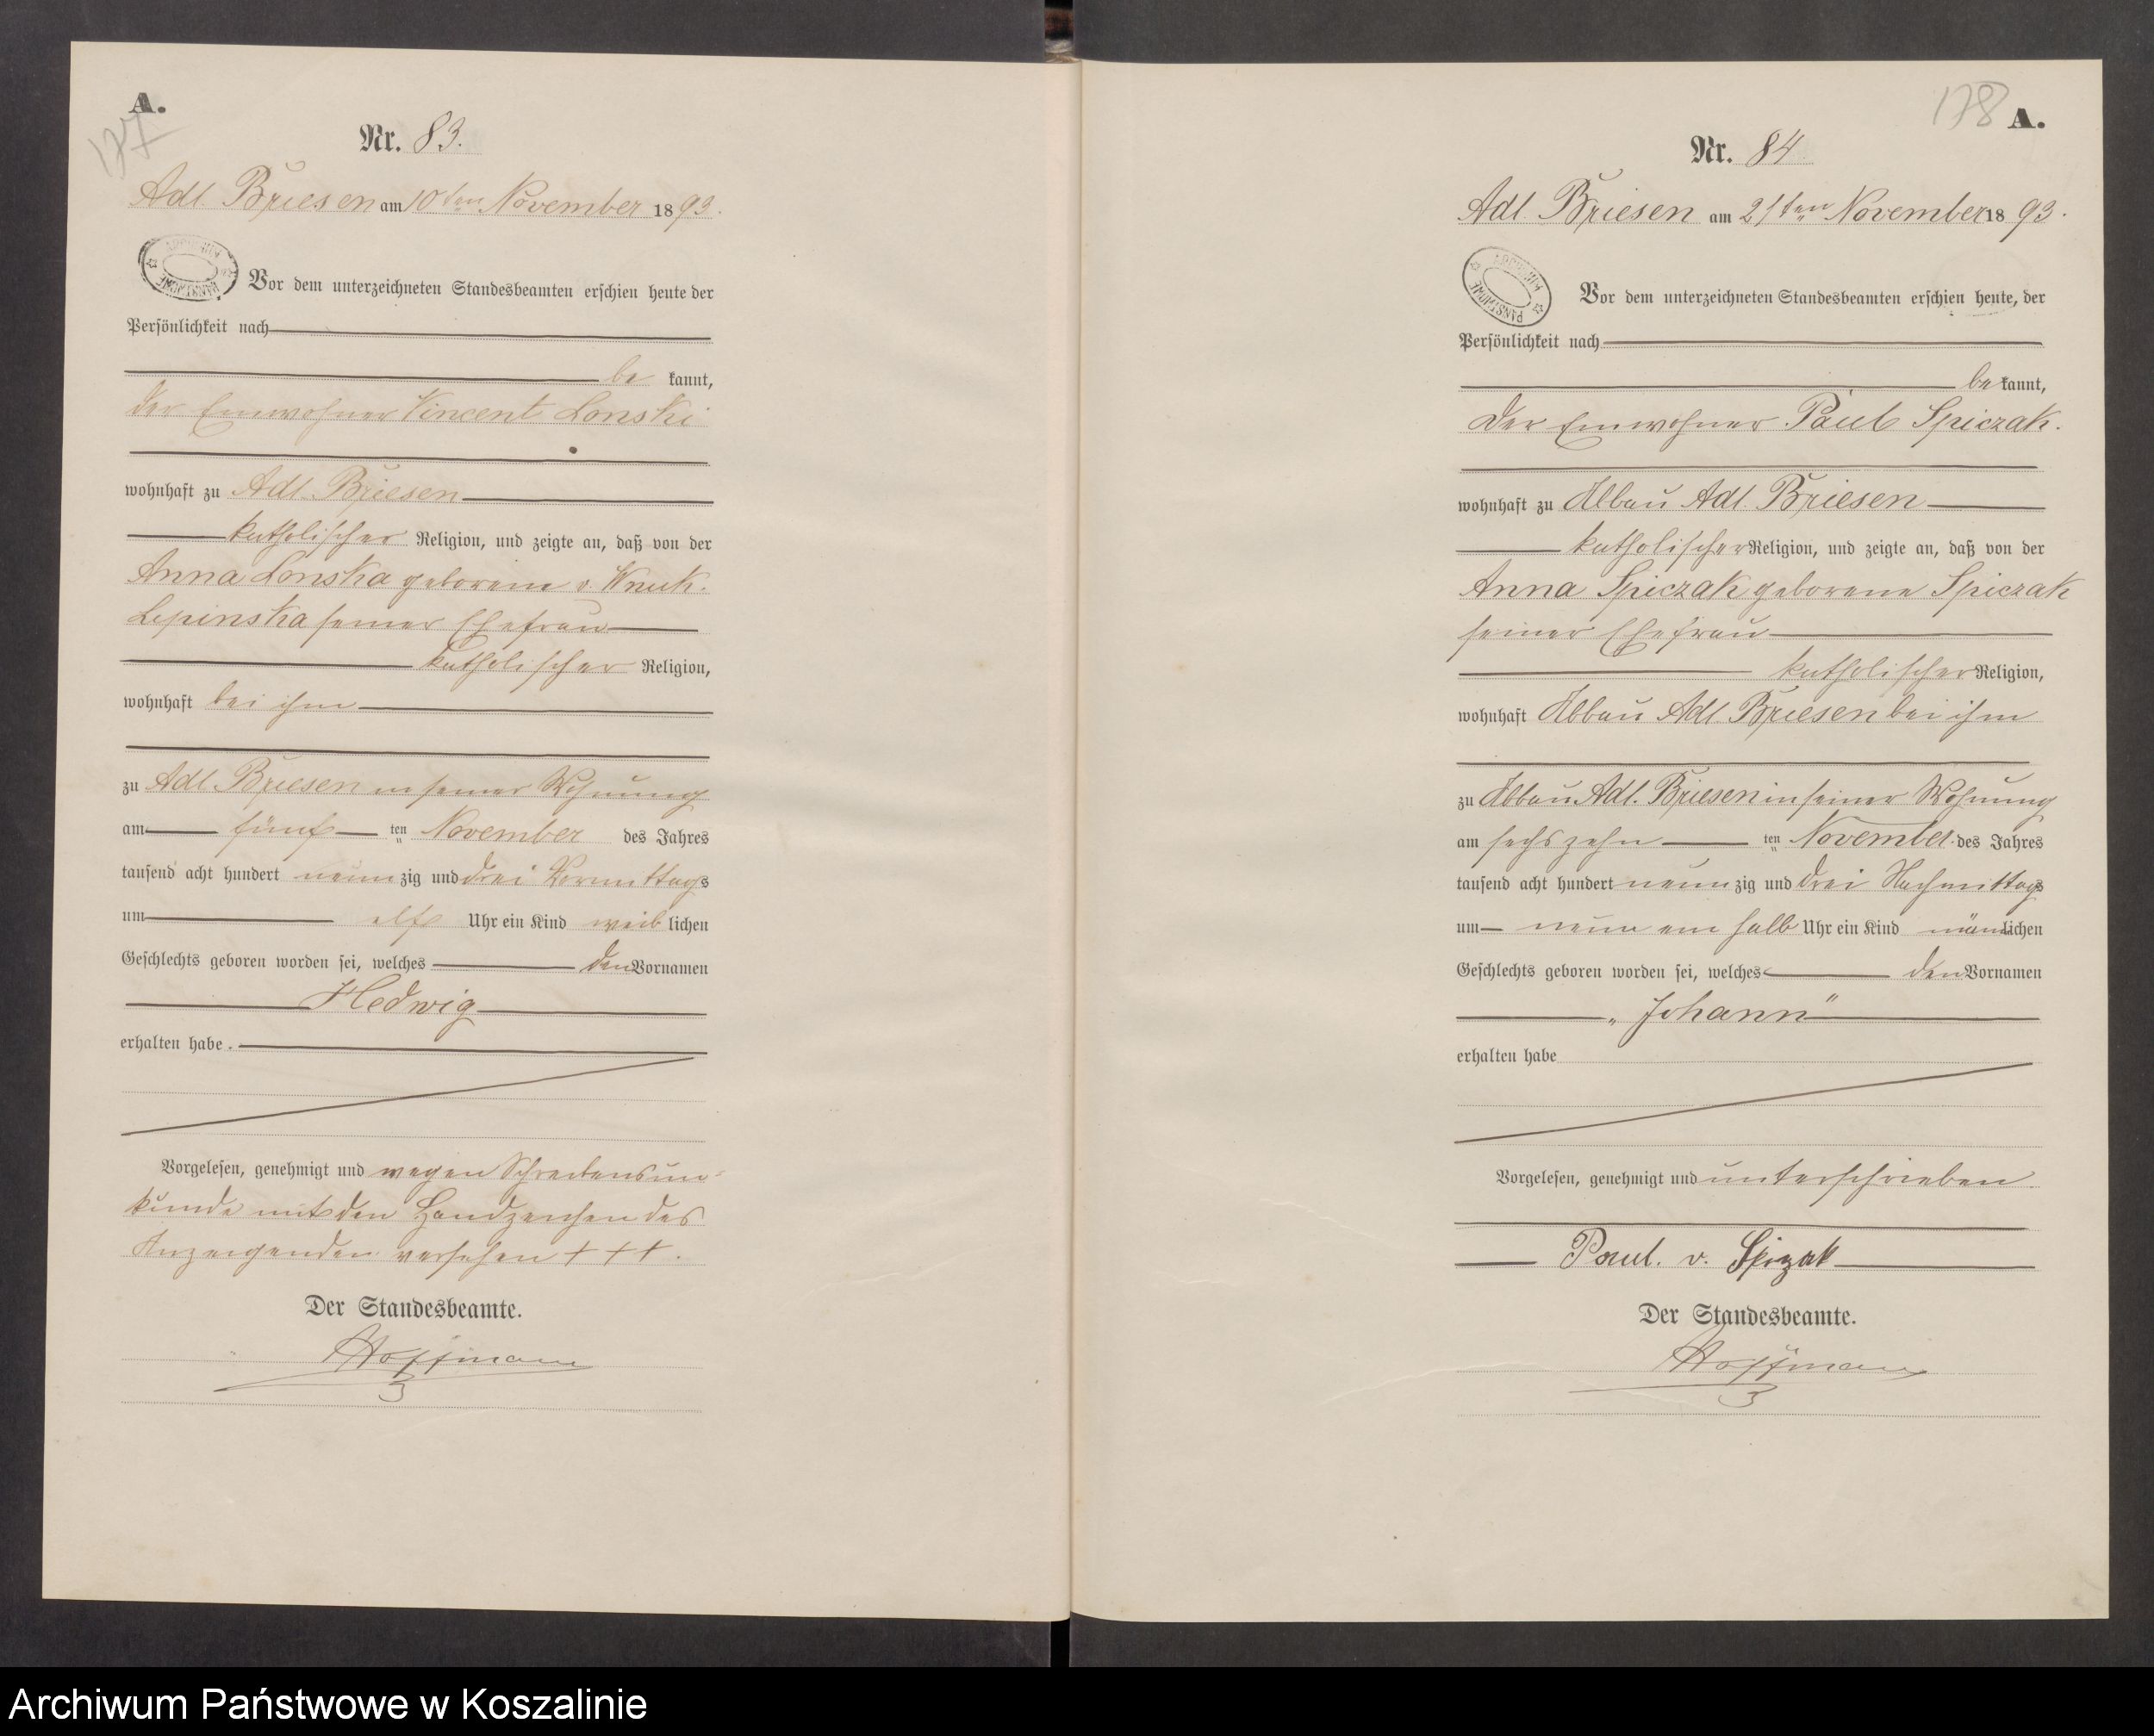 A.
177
Nr. 83.
Adl. Briesen am 10ten November 1893.
Vor dem unterzeichneten Standesbeamten erschien heute der
Persönlichkeit nach
be kannt,
der Einwohner Vincent Lonski
wohnhaft zu Adl. Briesen
katholischer Religion, und zeigte an, daß von der
Anna Lonska geborene v. Wnuk-
Lepinska seiner Ehefrau
katholischer Religion,
wohnhaft bei ihm
zu Adl. Briesen in seiner Wohnung
am fünf ten November des Jahres
tausend acht hundert neunzig und drei Vormittags
um elf Uhr ein Kind weiblichen
Geschlechts geboren worden sei, welches den Vornamen
Hedwig
erhalten habe.
Vorgelesen, genehmigt und wegen Schreibensun-
kunde mit den Handzeichen des
Anzeigenden versehen + + +.
Der Standesbeamte.
Hoffmann
178 A.
Nr. 84
Adl. Briesen am 21ten November 1893.
Vor dem unterzeichneten Standesbeamten erschien heute, der
Persönlichkeit nach
be kannt,
der Einwohner Paul Spiczak.
wohnhaft zu Abbau Adl. Briesen
katholischer Religion, und zeigte an, daß von der
Anna Spiczak geborene Spiczak
seiner Ehefrau
katholischer Religion,
wohnhaft Abbau Adl. Briesen bei ihm
zu Abbau Adl. Briesen in seiner Wohnung
am sechszehn ten November des Jahres
tausend acht hundert neunzig und drei Nachmittags
um neun ein halb Uhr ein Kind männlichen
Geschlechts geboren worden sei, welches den Vornamen
„Johann"
erhalten habe
Vorgelesen, genehmigt und unterschrieben.
Paul. v. Spizak
Der Standesbeamte.
Hoffmann
Archiwum Państwowe w Koszalinie